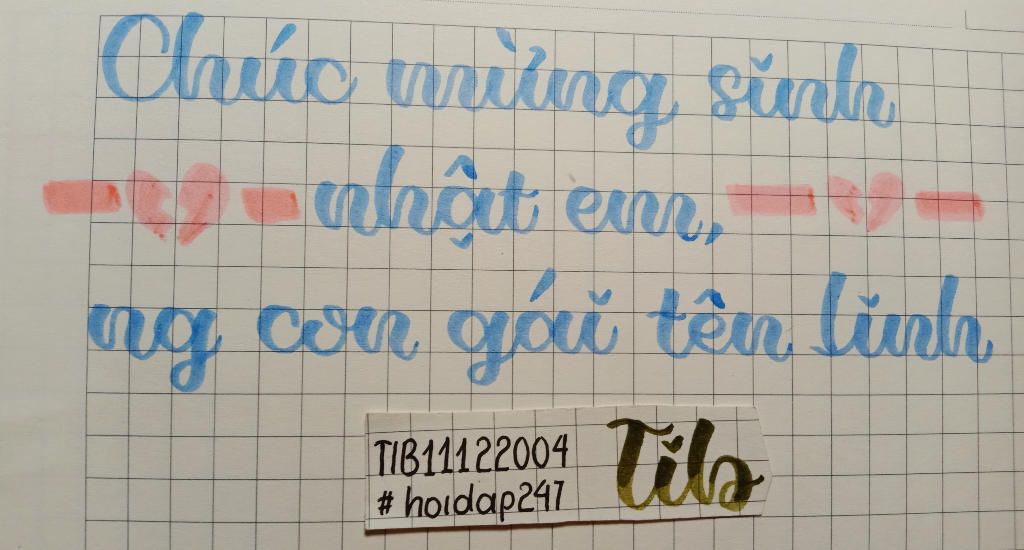 Chúc mừng sinh
nhật em,
ng con gái tên linh
TIB11122004
#hoidap247
Tib